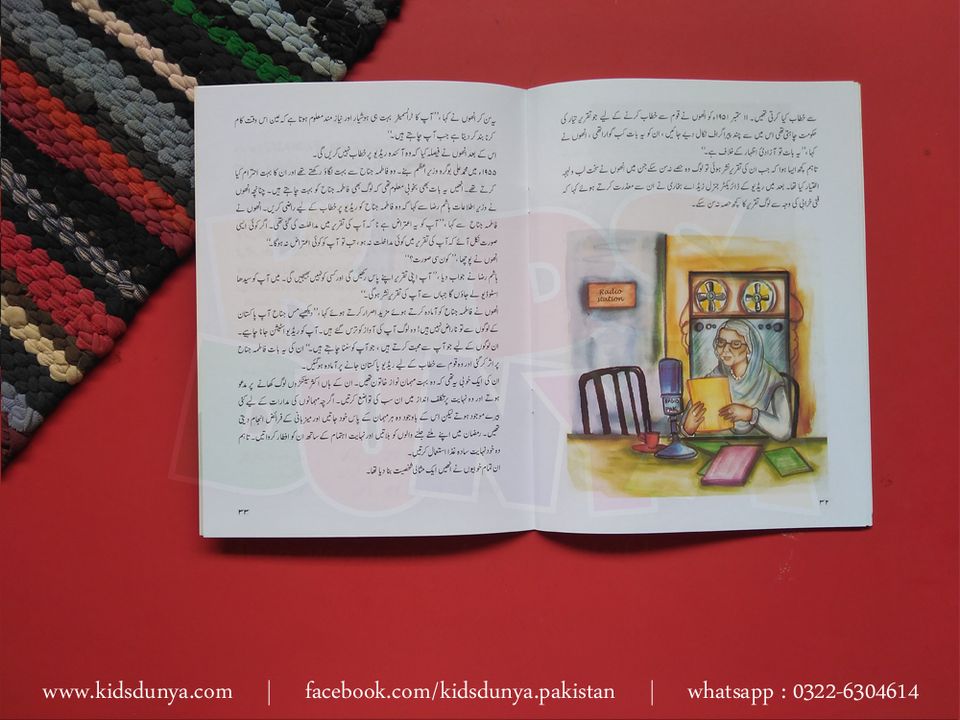 سے خطاب کیا کرتی تھیں۔ ۱۱ ستمبر ۱۹۵۱ء کو انھوں نے قوم سے خطاب کرنے کے لیے جو تقریر تیار کی
حکومت چاہتی تھی اس میں سے چند پیراگراف نکال دیے جائیں، ان کو یہ بات کب گوارا تھی، انھوں نے
کہا، ’’یہ بات تو آزادیِ اظہار کے خلاف ہے۔‘‘
تاہم کچھ ایسا ہوا کہ جب ان کی تقریر نشر ہوئی تو لوگ دو حصے نہ سن سکے جن میں انھوں نے سخت لب و لہجہ
اختیار کیا تھا۔ بعد میں ریڈیو کے ڈائریکٹر جنرل زیڈ اے بخاری نے ان سے معذرت کرتے ہوئے کہا کہ
فنی خرابی کی وجہ سے لوگ تقریر کا کچھ حصہ نہ سن سکے۔
Radio
station
RADIO
PAK
۳۲
یہ سن کر انھوں نے کہا، ’’آپ کا ٹرانسمیٹر بہت ہی ہوشیار اور نیاز مند معلوم ہوتا ہے کہ عین اس وقت کام
کرنا بند کر دیتا ہے جب آپ چاہتے ہیں۔‘‘
اس کے بعد انھوں نے فیصلہ کیا کہ وہ آئندہ ریڈیو پر خطاب نہیں کریں گی۔
۱۹۵۵ء میں محمد علی بوگرہ وزیرِ اعظم بنے۔ وہ فاطمہ جناح سے بہت لگاؤ رکھتے تھے اور ان کا بہت احترام کیا
کرتے تھے۔ انھیں یہ بات بھی بخوبی معلوم تھی کہ لوگ بھی فاطمہ جناح کو بہت چاہتے ہیں۔ چنانچہ انھوں
نے وزیرِ اطلاعات ہاشم رضا سے کہا کہ وہ فاطمہ جناح کو ریڈیو پر خطاب کے لیے راضی کریں۔ انھوں نے
فاطمہ جناح سے کہا، ’’آپ کو یہ اعتراض ہے نا کہ آپ کی تقریر میں مداخلت کی گئی تھی۔ اگر کوئی ایسی
صورت نکل آئے کہ آپ کی تقریر میں کوئی مداخلت نہ ہو، تب تو آپ کو کوئی اعتراض نہ ہو گا۔‘‘
انھوں نے پوچھا، ’’کون سی صورت؟‘‘
ہاشم رضا نے جواب دیا، ’’آپ اپنی تقریر اپنے پاس رکھیں گی اور کسی کو نہیں بھیجیں گی۔ میں آپ کو سیدھا
اسٹوڈیو لے جاؤں گا جہاں سے آپ کی تقریر نشر ہو گی۔‘‘
انھوں نے فاطمہ جناح کو آمادہ کرتے ہوئے مزید اصرار کرتے ہوئے کہا، ’’دیکھیے مس جناح آپ پاکستان
کے لوگوں سے تو ناراض نہیں ہیں! وہ لوگ آپ کی آواز کو ترس گئے ہیں۔ آپ کو ریڈیو اسٹیشن جانا چاہیے۔
ان لوگوں کے لیے جو آپ سے محبت کرتے ہیں، جو آپ کو سننا چاہتے ہیں۔‘‘ ان کی یہ بات فاطمہ جناح
پر اثر کر گئی اور وہ قوم سے خطاب کے لیے ریڈیو پاکستان جانے پر آمادہ ہو گئیں۔
ان کی ایک خوبی یہ تھی کہ وہ بہت مہمان نواز خاتون تھیں۔ ان کے ہاں اکثر سینکڑوں لوگ کھانے پر مدعو
ہوتے اور وہ نہایت پرتکلف انداز میں ان سب کی تواضع کرتیں۔ اگرچہ مہمانوں کی مدارات کے لیے کئی
بیرے موجود ہوتے لیکن اس کے باوجود وہ ہر مہمان کے پاس خود جاتیں اور میزبانی کے فرائض انجام دیتی
تھیں۔ رمضان میں اپنے ملنے جلنے والوں کو بلاتیں اور نہایت اہتمام کے ساتھ ان کو افطار کرواتیں۔ تاہم
وہ خود نہایت سادہ غذا استعمال کرتیں۔
ان تمام خوبیوں نے انھیں ایک مثالی شخصیت بنا دیا تھا۔
۳۳
KIDS
DUNYA
www.kidsdunya.com | facebook.com/kidsdunya.pakistan | whatsapp : 0322-6304614